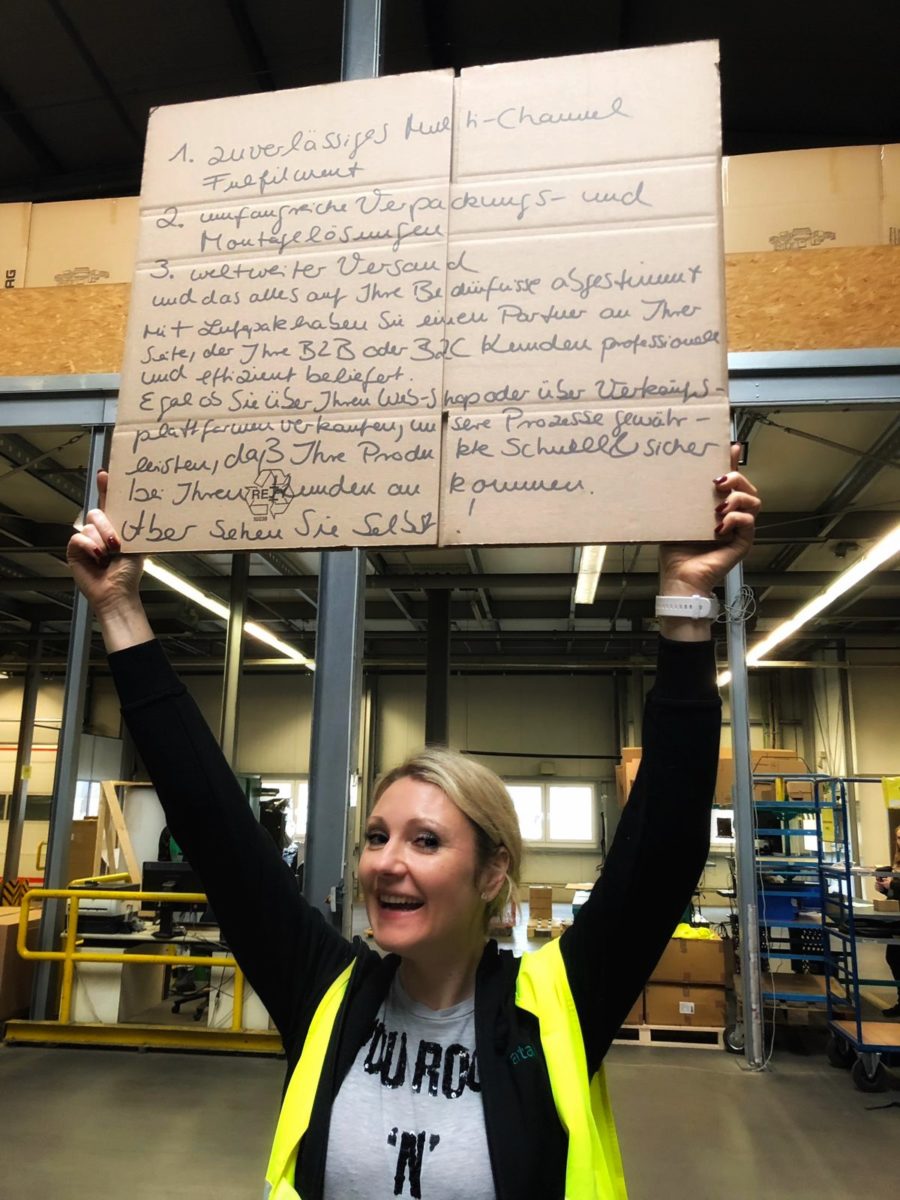 1. zuverlässiges Multi-Channel
Fulfilment
2. umfangreiche Verpackungs- und
Montagelösungen
3. weltweiter Versand
und das alles auf Ihre Bedürfnisse abgestimmt
Mit haben Sie einen Partner an Ihrer
Seite, der Ihre B2B oder B2C Kunden professionell
und effizient beliefert.
Egal ob Sie über Ihren Web-Shop oder über Verkaufs-
plattformen verkaufen, unsere Prozesse gewähr-
leisten, daß Ihre Produkte Schnell & sicher
bei Ihren Kunden ankommen.
Aber sehen Sie Selbst!
RESY
YOU ROC
'N'
ata